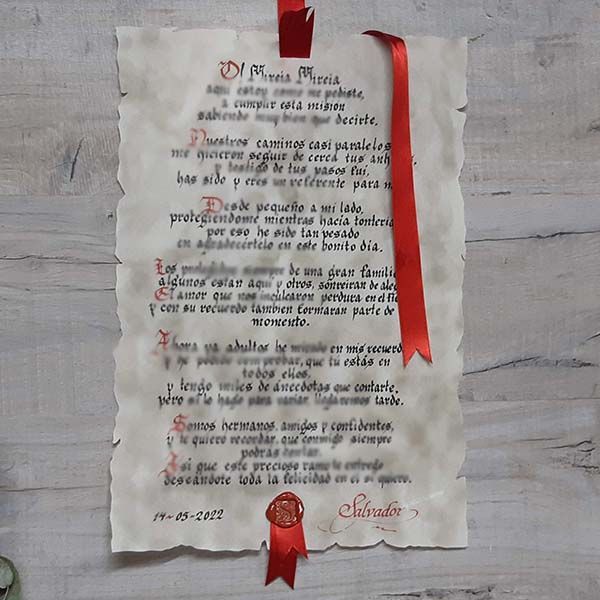 O! Mireia Mireia
aquí estoy como me pediste,
a cumplir esta misión
sabiendo muy bien que decirte.
Nuestros caminos casi paralelos
me hicieron seguir de cerca tus
y testigo de tus pasos fui,
has sido y eres un referente para
Desde pequeño a mi lado,
protegiéndome mientras hacía
por eso he sido tan pesado
en agradecértelo en este bonito día.
Los siempre de una gran
algunos están aquí y otros, sonreirán de
El amor que nos inculcaron perdura en el
y con su recuerdo también formarán parte de
momento.
Ahora ya adultos he en mis
y he podido comprobar, que tú estás en
todos ellos,
y tengo miles de anécdotas que contarte,
pero si lo hago para variar llegaremos tarde.
Somos hermanos, amigos y confidentes,
y te quiero recordar, que conmigo siempre
podrás contar.
Así que este precioso ramo te entrego
deseándote toda la felicidad en el sí quiero.
14-05-2022
Salvador
S